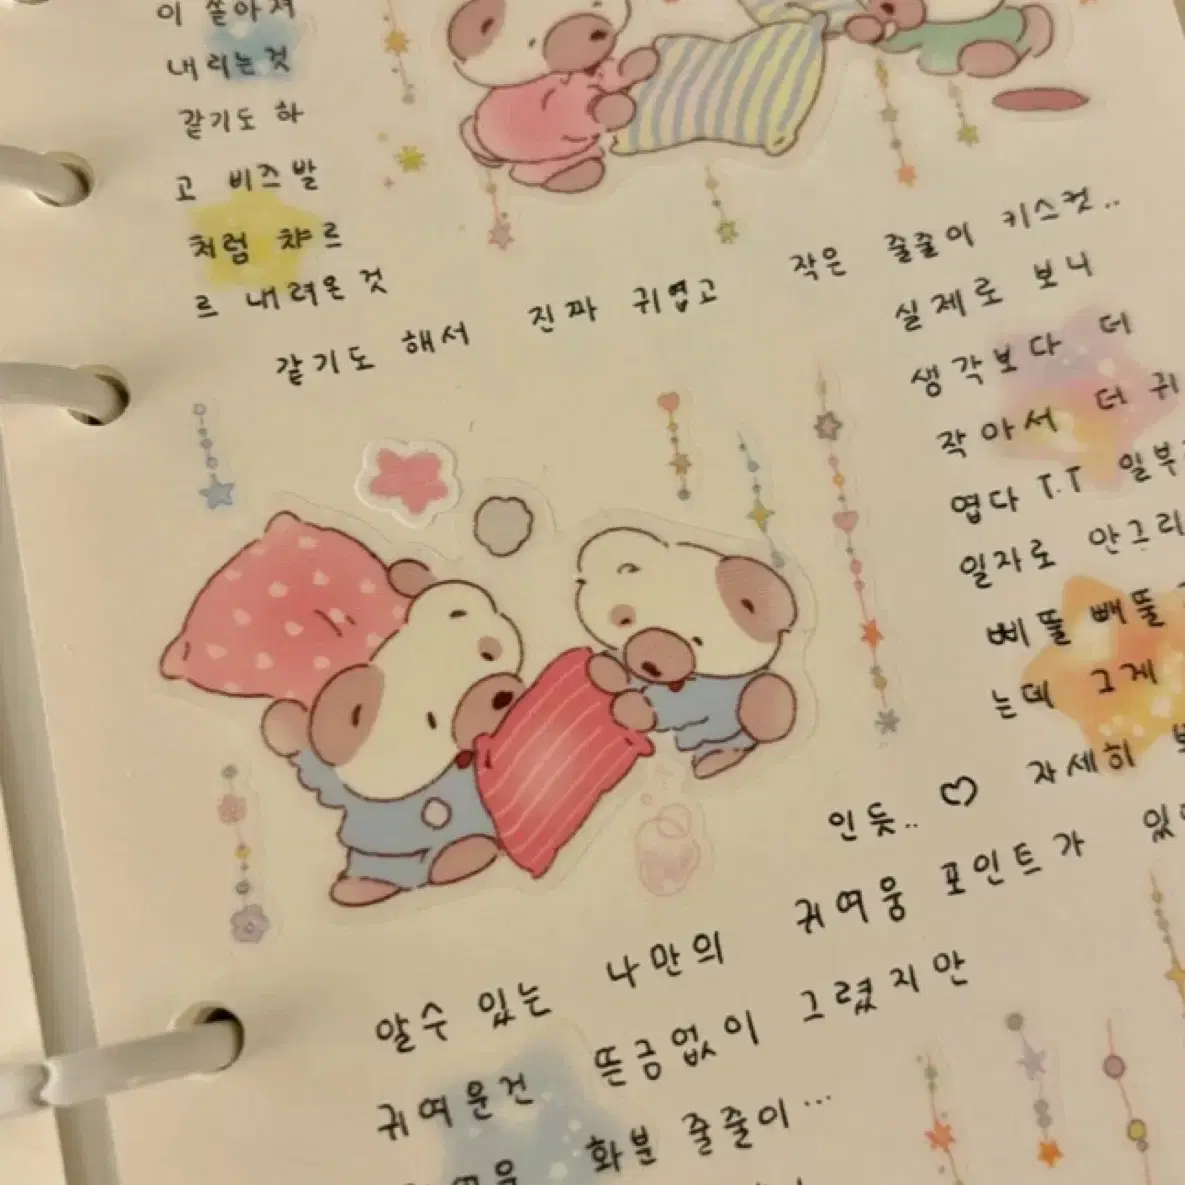 이 쏟아져
내리는 것
같기도 하
고 비즈발
처럼 챠르
르 내려온 것
같기도 해서 진짜 귀엽고 작은 줄줄이 키스컷..
실제로 보니
생각보다 더
작아서 더 귀
엽다 T.T 일부
일자로 안그리
삐뚤빼뚤
는데 그게
인듯.. ♡ 자세히
알수 있는 나만의 귀여움 포인트가
귀여운건 뜬금없이 그렸지만
화분 줄줄이...